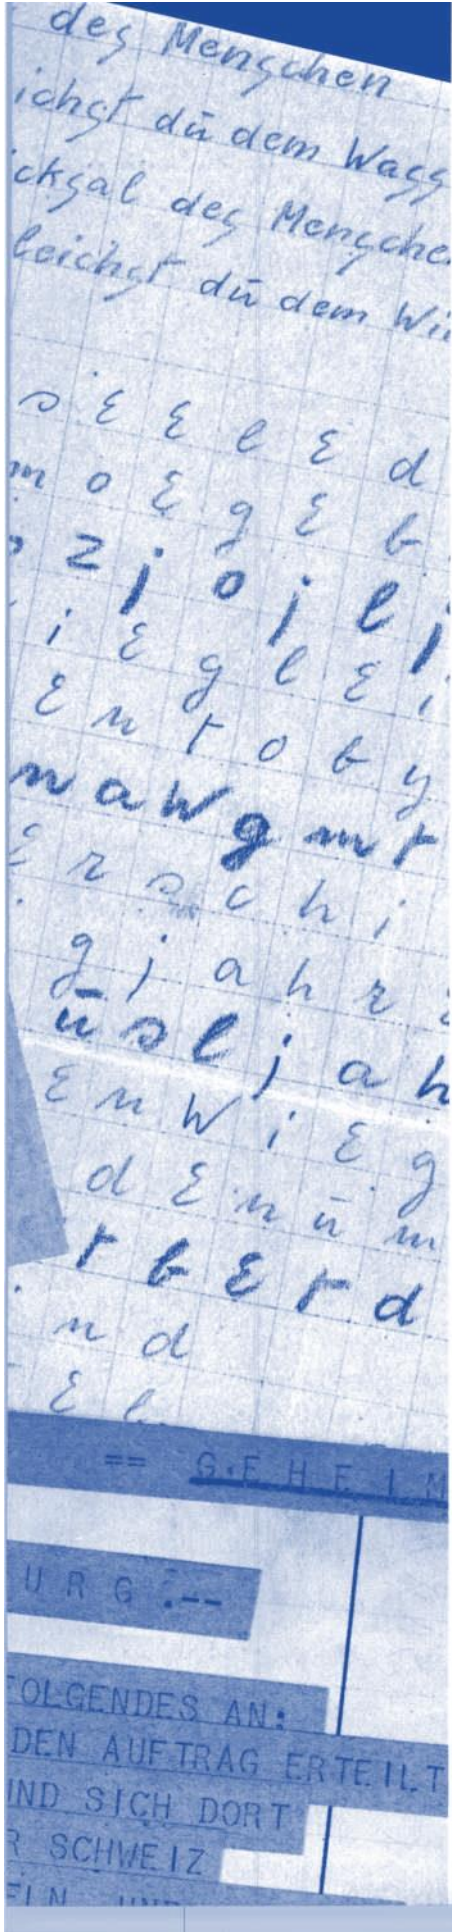 des Menschen
ichst dū dem Wass
cksal des Mensche
leichst dū dem Wi
s e e l e d
m o e g e b
z j o j l j
i e g l e i
e n t o b y
n a w g m t
e r s c h i
g j a h r
ū s l j a h
e n w i e g
d e n ū m
t b e t d
n d
e l
== G.E H E I M
U R G .--
OLGENDES AN:
DEN AUFTRAG ERTEILT
IND SICH DORT
R SCHWEIZ